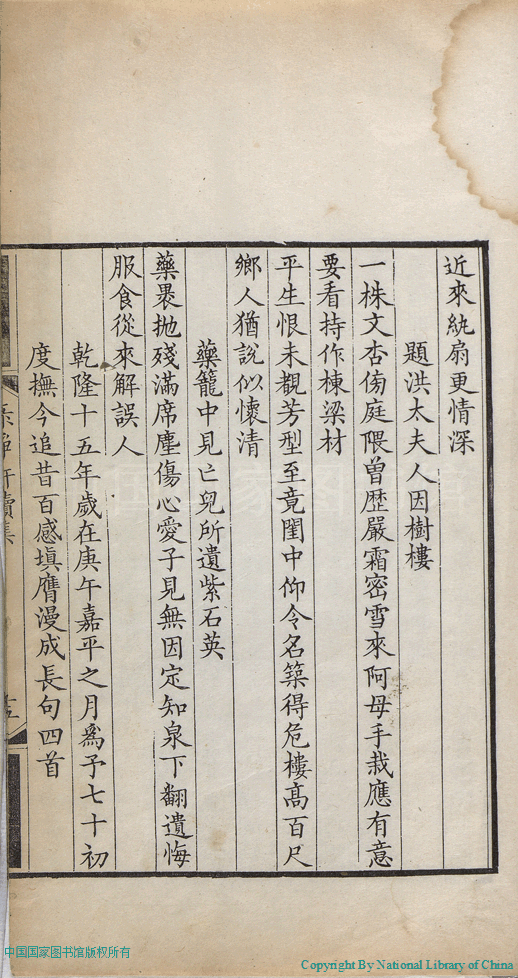 近來紈扇更情深
題洪太夫人因樹樓
一株文杏傍庭隈曽歴嚴霜密雪來阿母手栽應有意
要看持作棟梁材
平生恨未覩芳型至竟閨中仰令名築得危樓髙百尺
鄉人猶說似懷清
藥籠中見亡兒所遺紫石英
藥褁抛殘滿席塵傷心愛子見無因定知泉下翻遺悔
服食從來解誤人
乾隆十五年歲在庚午嘉平之月爲予七十初
度撫今追昔百感塡膺漫成長句四首
中国国家图书馆版权所有
Copyright By National Library of China